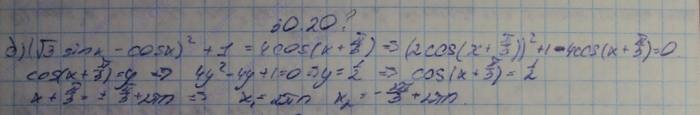 30.20?
б) (√3 sinx - cosx)² + 1 = 4cos(x + π/3) => (2cos(x + π/3))² + 1 - 4cos(x + π/3) = 0
cos(x + π/3) = y => 4y² - 4y + 1 = 0 => y = 1/2 => cos(x + π/3) = 1/2
x + π/3 = ± π/3 + 2πn => x₁ = 2πn x₂ = - 2π/3 + 2πn.